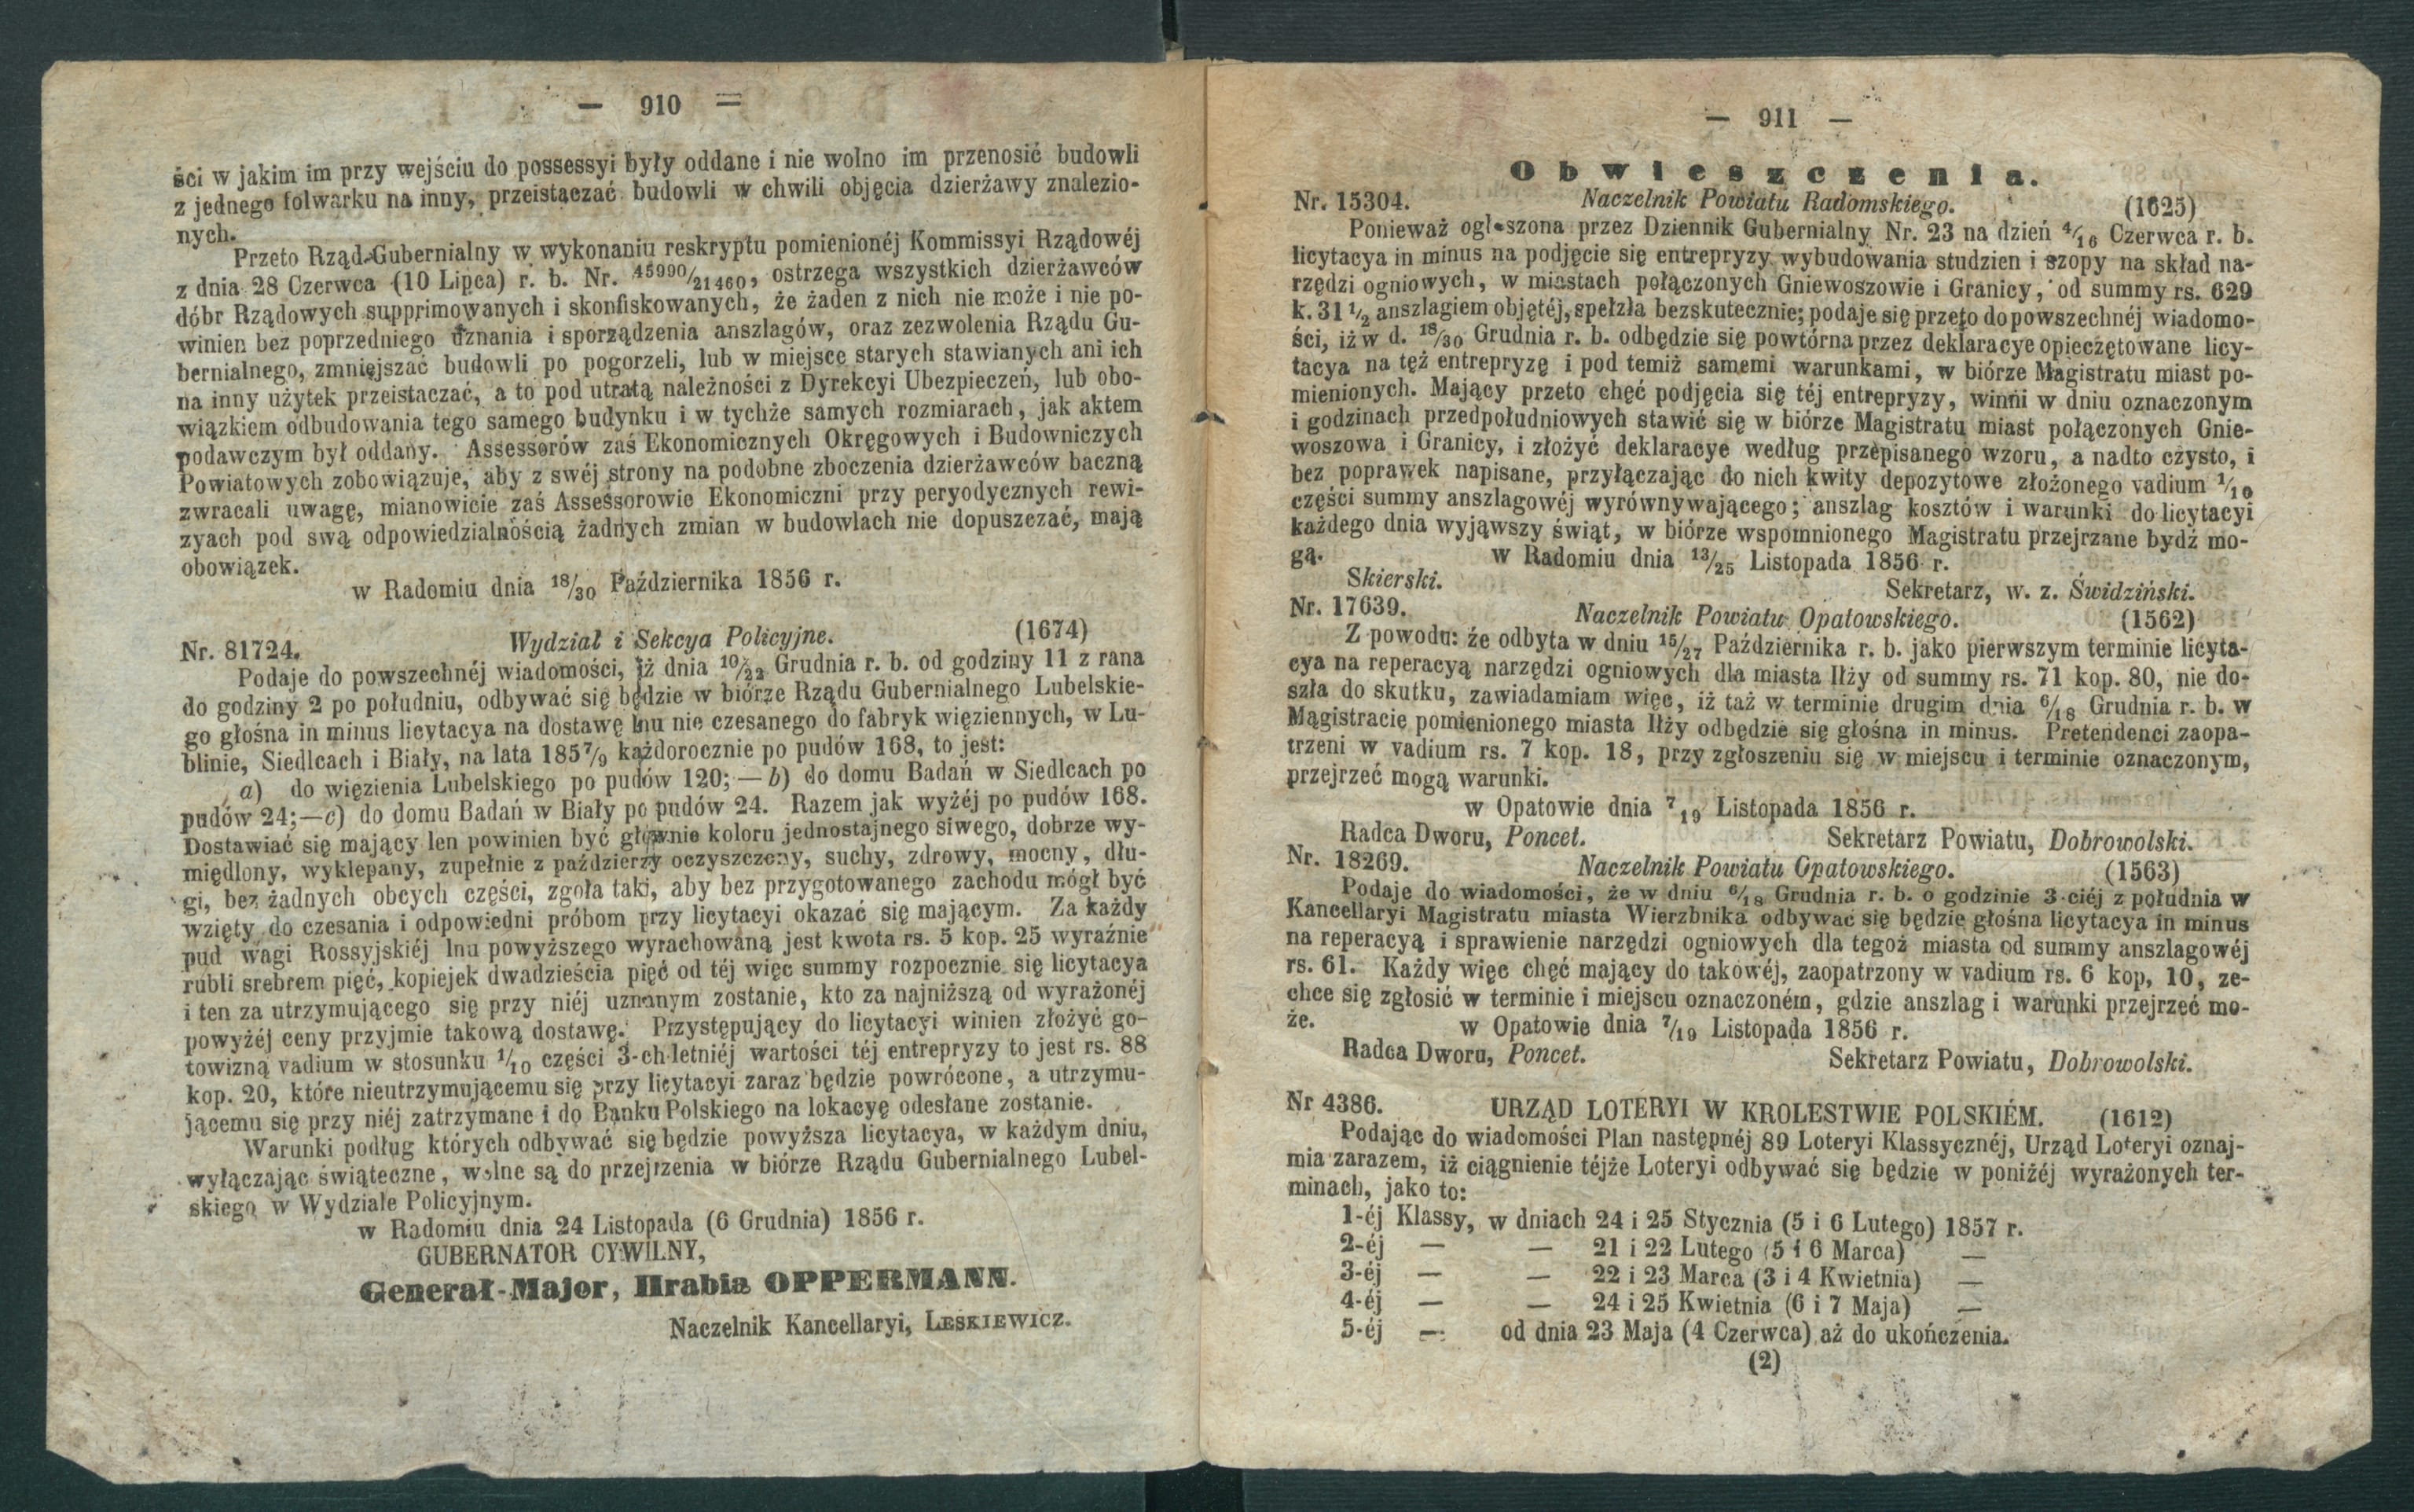 — 910 —
ści w jakim im przy wejściu do possessyi były oddane i nie wolno im przenosić budowli
z jednego folwarku na inny, przeistączać budowli w chwili objęcia dzierżawy znalezio-
nych.
Przeto Rząd Gubernialny w wykonaniu reskryptu pomienionéj Kommissyi Rządowéj
z dnia 28 Czerwca (10 Lipca) r. b. Nr. 45990/21460, ostrzega wszystkich dzierżawców
dóbr Rządowych supprimowanych i skonfiskowanych, że żaden z nich nie może i nie po-
winien bez poprzedniego uznania i sporządzenia anszlagów, oraz zezwolenia Rządu Gu-
bernialnego, zmniejszać budowli po pogorzeli, lub w miejsce starych stawianych ani ich
na inny użytek przeistaczać, a to pod utratą należności z Dyrekcyi Ubezpieczeń, lub obo-
wiązkiem odbudowania tego samego budynku i w tychże samych rozmiarach, jak aktem
podawczym był oddany. Assessorów zaś Ekonomicznych Okręgowych i Budowniczych
Powiatowych zobowiązuje, aby z swéj strony na podobne zboczenia dzierżawców baczną
zwracali uwagę, mianowicie zaś Assessorowie Ekonomiczni przy peryodycznych rewi-
zyach pod swą odpowiedzialnością żadnych zmian w budowlach nie dopuszczać, mają
obowiązek.
w Radomiu dnia 18/30 Października 1856 r.
Nr. 81724. Wydział i Sekcya Policyjne. (1674)
Podaje do powszechnéj wiadomości, iż dnia 10/22 Grudnia r. b. od godziny 11 z rana
do godziny 2 po południu, odbywać się będzie w biórze Rządu Gubernialnego Lubelskie-
go głośna in minus licytacya na dostawę lnu nie czesanego do fabryk więziennych, w Lu-
blinie, Siedlcach i Biały, na lata 1857/9 każdorocznie po pudów 168, to jest:
a) do więzienia Lubelskiego po pudów 120; — b) do domu Badań w Siedlcach po
pudów 24;—c) do domu Badań w Biały po pudów 24. Razem jak wyżéj po pudów 168.
Dostawiać się mający len powinien być głównie koloru jednostajnego siwego, dobrze wy-
międlony, wyklepany, zupełnie z paździerzy oczyszczony, suchy, zdrowy, mocny, dłu-
gi, bez żadnych obcych części, zgoła taki, aby bez przygotowanego zachodu mógł być
wzięty do czesania i odpowiedni próbom przy licytacyi okazać się mającym. Za każdy
pud wagi Rossyjskiéj lnu powyższego wyrachowaną jest kwota rs. 5 kop. 25 wyraźnie
rubli srebrem pięć, kopiejek dwadzieścia pięć od téj więc summy rozpocznie się licytacya
i ten za utrzymującego się przy niéj uznanym zostanie, kto za najniższą od wyrażonéj
powyżéj ceny przyjmie takową dostawę. Przystępujący do licytacyi winien złożyć go-
towizną vadium w stosunku 1/10 części 3-ch letniéj wartości téj entrepryzy to jest rs. 88
kop. 20, które nieutrzymującemu się przy licytacyi zaraz będzie powrócone, a utrzymu-
jącemu się przy niéj zatrzymane i do Banku Polskiego na lokacyę odesłane zostanie.
Warunki podług których odbywać się będzie powyższa licytacya, w każdym dniu,
wyłączając świąteczne, wolne są do przejrzenia w biórze Rządu Gubernialnego Lubel-
skiego w Wydziale Policyjnym.
w Radomiu dnia 24 Listopada (6 Grudnia) 1856 r.
GUBERNATOR CYWILNY,
Generał-Major, Hrabia OPPERMANN.
Naczelnik Kancellaryi, LESKIEWICZ.
— 911 —
Obwieszczenia.
Nr. 15304. Naczelnik Powiatu Radomskiego. (1625)
Ponieważ ogłoszona przez Dziennik Gubernialny Nr. 23 na dzień 4/16 Czerwca r. b.
licytacya in minus na podjęcie się entrepryzy wybudowania studzien i szopy na skład na-
rzędzi ogniowych, w miastach połączonych Gniewoszowie i Granicy, od summy rs. 629
k. 31 1/2 anszlagiem objętéj, spełzła bezskutecznie; podaje się przeto do powszechnéj wiadomo-
ści, iż w d. 18/30 Grudnia r. b. odbędzie się powtórna przez deklaracye opieczętowane licy-
tacya na tęż entrepryzę i pod temiż samemi warunkami, w biórze Magistratu miast po-
mienionych. Mający przeto chęć podjęcia się téj entrepryzy, winni w dniu oznaczonym
i godzinach przedpołudniowych stawić się w biórze Magistratu miast połączonych Gnie-
woszowa i Granicy, i złożyć deklaracye według przepisanego wzoru, a nadto czysto, i
bez poprawek napisane, przyłączając do nich kwity depozytowe złożonego vadium 1/10
części summy anszlagowéj wyrównywającego; anszlag kosztów i warunki do licytacyi
każdego dnia wyjąwszy świąt, w biórze wspomnionego Magistratu przejrzane bydź mo-
gą. w Radomiu dnia 13/25 Listopada 1856 r.
Skierski. Sekretarz, w. z. Świdziński.
Nr. 17639. Naczelnik Powiatu Opatowskiego. (1562)
Z powodu: że odbyta w dniu 15/27 Października r. b. jako pierwszym terminie licyta-
cya na reperacyą narzędzi ogniowych dla miasta Iłży od summy rs. 71 kop. 80, nie do-
szła do skutku, zawiadamiam więc, iż taż w terminie drugim dnia 6/18 Grudnia r. b. w
Magistracie pomienionego miasta Iłży odbędzie się głośna in minus. Pretendenci zaopa-
trzeni w vadium rs. 7 kop. 18, przy zgłoszeniu się w miejscu i terminie oznaczonym,
przejrzeć mogą warunki.
w Opatowie dnia 7 19 Listopada 1856 r.
Radca Dworu, Poncet. Sekretarz Powiatu, Dobrowolski.
Nr. 18269. Naczelnik Powiatu Opatowskiego. (1563)
Podaje do wiadomości, że w dniu 6/18 Grudnia r. b. o godzinie 3-ciéj z południa w
Kancellaryi Magistratu miasta Wierzbnika odbywać się będzie głośna licytacya in minus
na reperacyą i sprawienie narzędzi ogniowych dla tegoż miasta od summy anszlagowéj
rs. 61. Każdy więc chęć mający do takowéj, zaopatrzony w vadium rs. 6 kop, 10, ze-
chce się zgłosić w terminie i miejscu oznaczoném, gdzie anszlag i warunki przejrzeć mo-
że. w Opatowie dnia 7/19 Listopada 1856 r.
Radca Dworu, Poncet. Sekretarz Powiatu, Dobrowolski.
Nr 4386. URZĄD LOTERYI W KROLESTWIE POLSKIÉM. (1612)
Podając do wiadomości Plan następnéj 89 Loteryi Klassycznéj, Urząd Loteryi oznaj-
mia zarazem, iż ciągnienie téjże Loteryi odbywać się będzie w poniżéj wyrażonych ter-
minach, jako to:
1-éj Klassy, w dniach 24 i 25 Stycznia (5 i 6 Lutego) 1857 r.
2-éj — — 21 i 22 Lutego (5 i 6 Marca) —
3-éj — — 22 i 23 Marca (3 i 4 Kwietnia) —
4-éj — — 24 i 25 Kwietnia (6 i 7 Maja) —
5-éj — od dnia 23 Maja (4 Czerwca) aż do ukończenia.
(2)